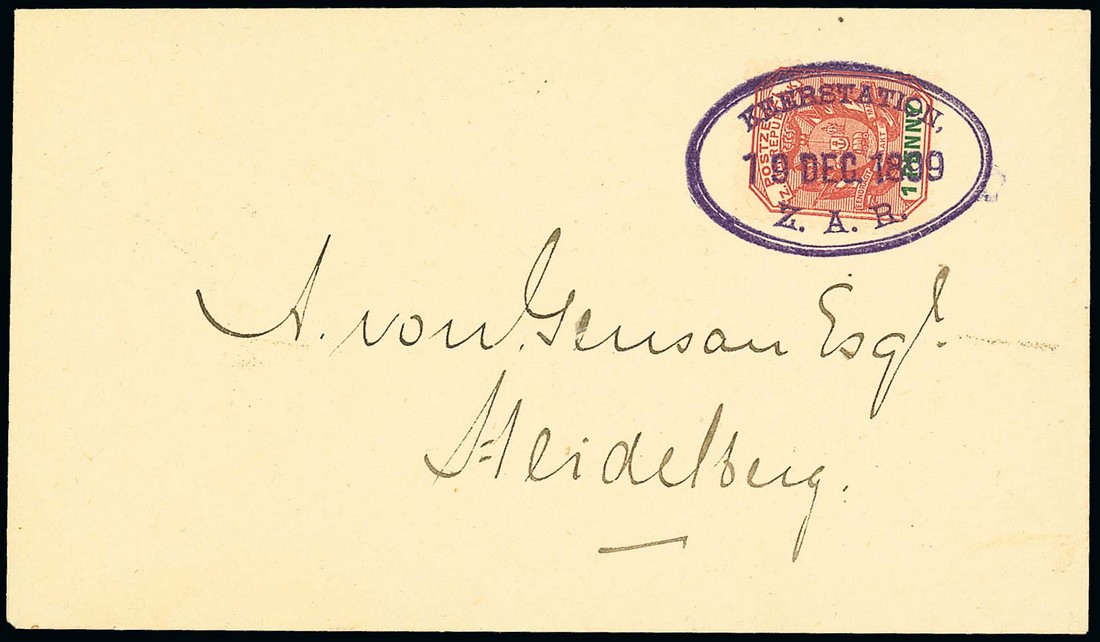 KEERSTATION,
19 DEC. 1899
Z. A. R.
POSTZE
Z. REPUB
1 PENNY
A. von Gensan Esqr.
Heidelberg.